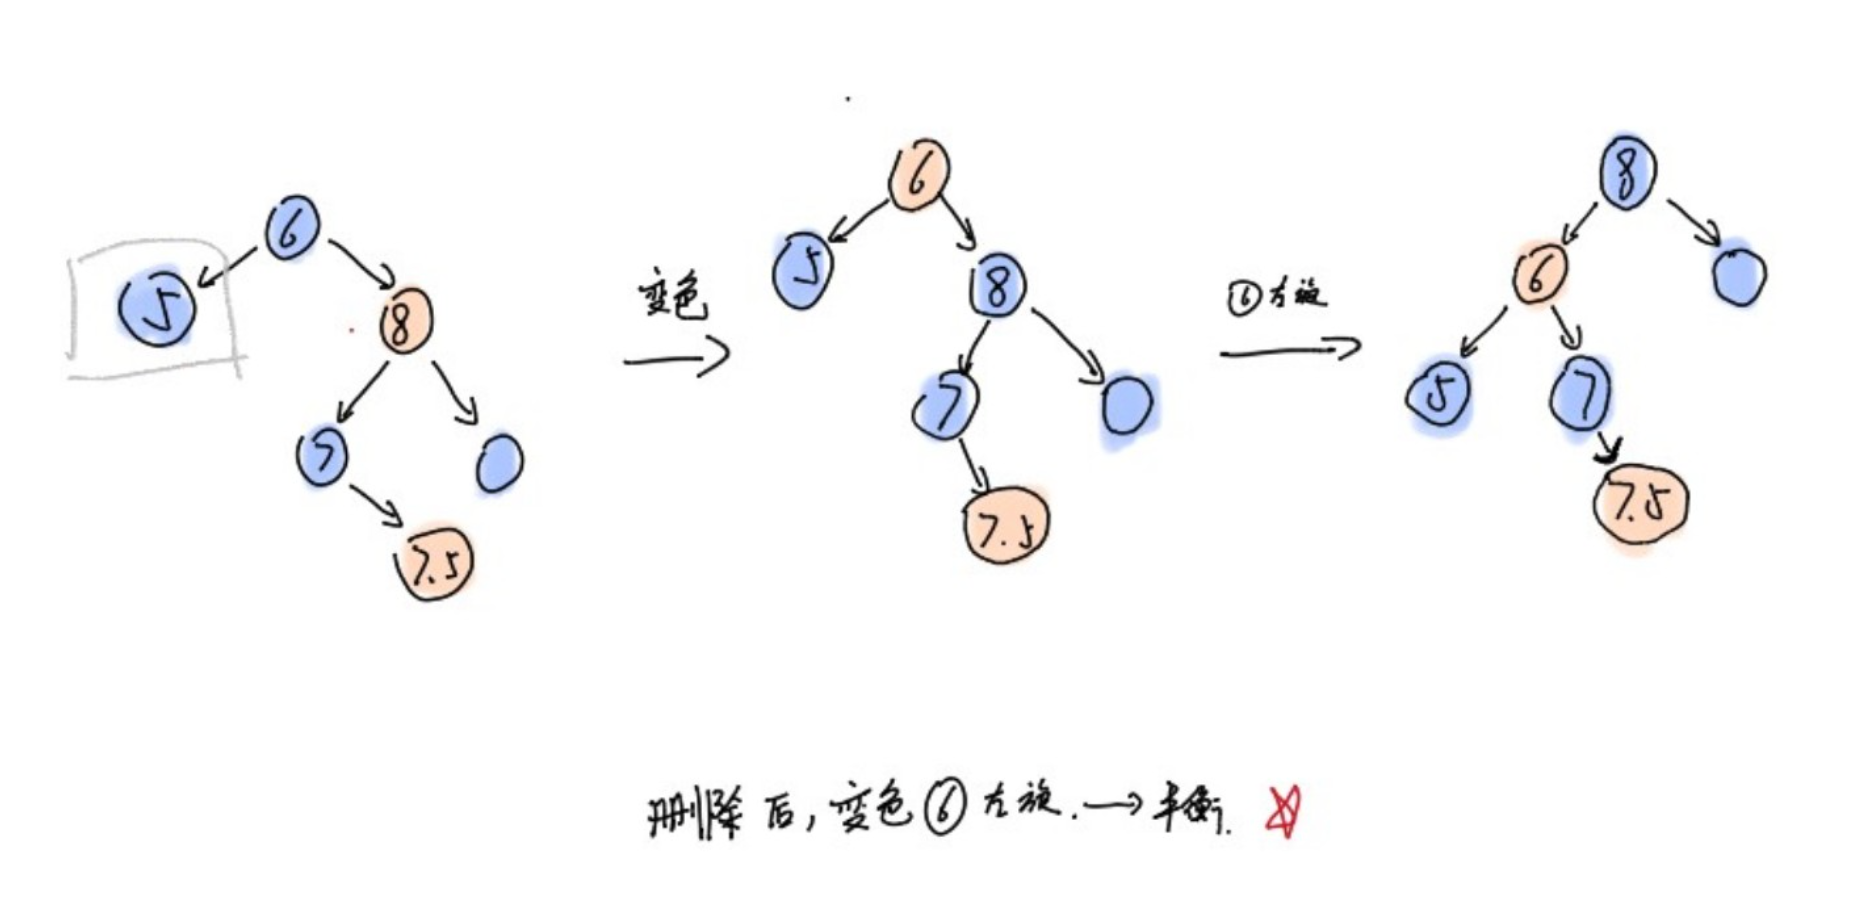 6
5
8
7
7.5
变色
6
5
8
7
7.5
⑥左旋
8
6
5
7
7.5
删除后,变色⑥左旋.→平衡.